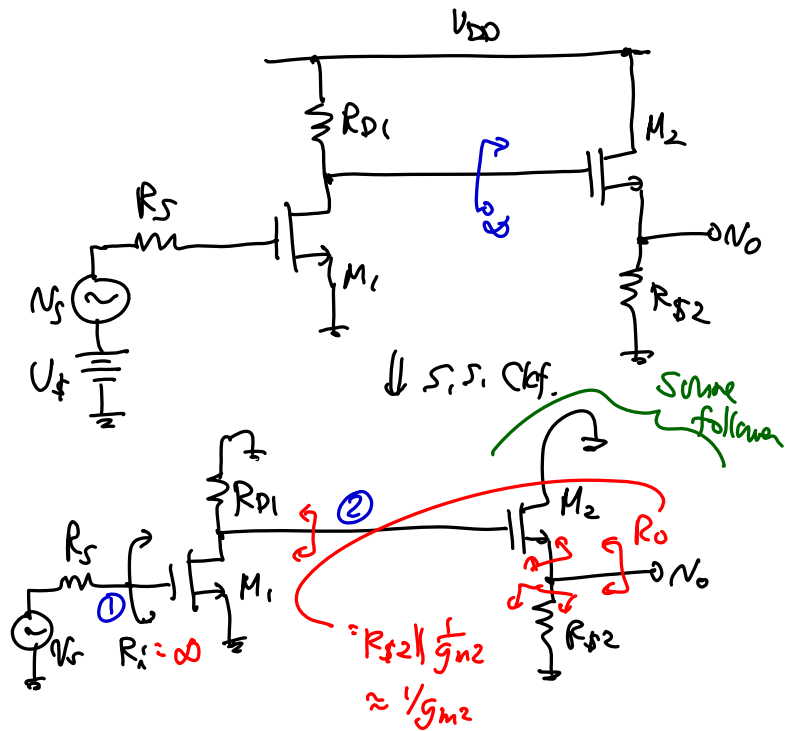 V_DD
R_D1
M_2
∞
R_S
N_o
M_1
N_S
R_S2
V_S
⇓ s.s. Ckt.
Source
follower
R_D1
②
M_2
R_o
R_S
M_1
N_o
①
R_i = ∞
V_S
R_S2
= R_S2 ∥ 1/g_m2
≈ 1/g_m2